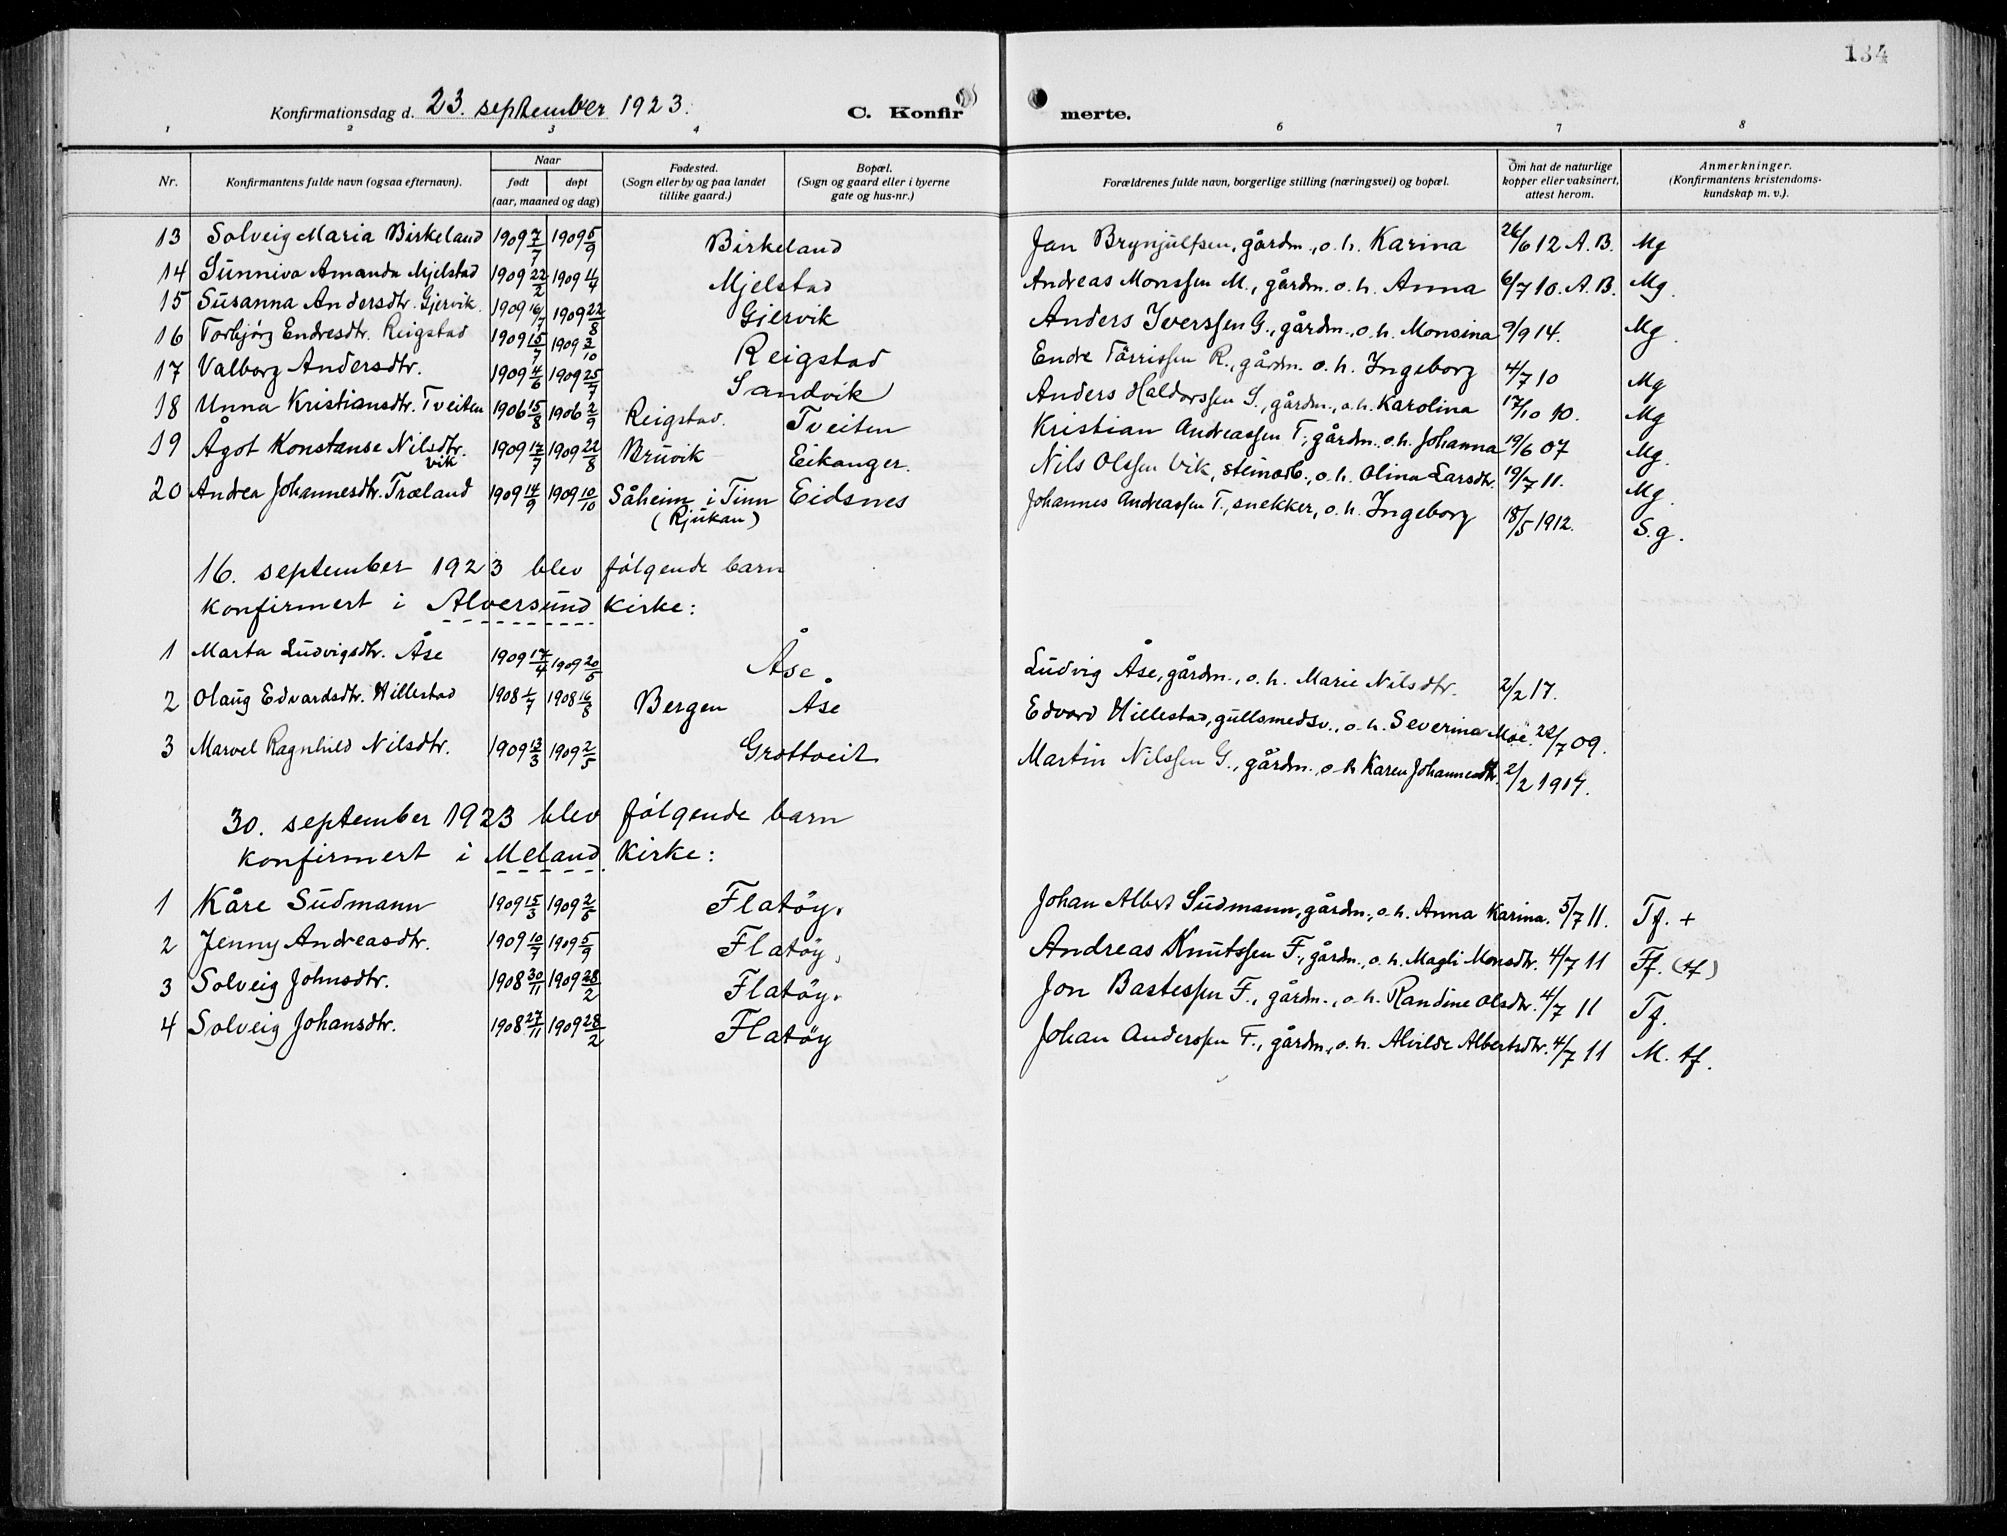 134
Konfirmationsdag d. 23. september 1923. C. Konfirmerte.
1 2 3 4 6 7 8
Nr. Konfirmantens fulde navn (ogsaa efternavn). Naar født døpt (aar, maaned og dag) Fødested. (Sogn eller by og paa landet tillike gaard.) Bopæl. (Sogn og gaard eller i byerne gate og hus-nr.) Forældrenes fulde navn, borgerlige stilling (næringsvei) og bopæl. Om hat de naturlige kopper eller vaksinert, attest herom. Anmerkninger. (Konfirmantens kristendoms-kundskap m. v.).
13 Solveig Maria Birkeland 1909 7/7 1909 5/9 Birkeland Jan Brynjulfsen, gårdm., o. h. Karina 26/6 12 A. B. Mg
14 Sunniva Amanda Mjelstad 1909 22/2 1909 4/4 Mjelstad Andreas Monssen M., gårdm. o. h. Anna 6/7 10. A. B. Mg.
15 Susanna Andersdtr. Gjervik 1909 16/7 1909 22/8 Gjervik Anders Iverssen G., gårdm., o. h. Monsina 9/9 14. Mg.
16 Torbjørg Endresdtr. Reigstad 1909 15/7 1909 3/10 Reigstad Endre Tørrissen R., gårdm. o. h. Ingeborg 4/7 10 Mg
17 Valborg Andersdtr. 1909 4/6 1909 25/7 Sandvik Anders Haldorssen S., gårdm., o. h. Karolina 17/10 10. Mg
18 Unna Kristiansdtr. Tveiten 1906 15/8 1906 2/9 Reigstad. Tveiten Kristian Andreassen T., gårdm. o. h. Johanna 19/6 07 Mg.
19 Ågot Konstanse Nilsdtr. Vik 1909 17/7 1909 22/8 Bruvik Eikanger. Nils Olssen Vik, steinarb., o. h. Olina Larsdtr. 19/7 11. Mg.
20 Andrea Johannesdtr. Træland 1909 14/9 1909 10/10 Såheim i Tinn (Rjukan) Eidsnes Johannes Andreassen T., snekker, o. h. Ingeborg 18/5 1912. S.g.
16. september 1923 blev følgende barn
konfirmert i Alversund kirke:
1 Marta Ludvigsdtr. Åse 1909 17/4 1909 20/5 Åse Ludvig Åse, gårdm., o. h. Marie Nilsdtr. 2/2 17.
2 Olaug Edvardsdtr. Hillestad 1908 1/7 1908 16/8 Bergen Åse Edvard Hillestad, gullsmedsv., o. h. Severina Moe. 22/7 09.
3 Marvel Ragnhild Nilsdtr. 1909 13/3 1909 2/5 Grottveit Martin Nilssen G., gårdm., o h Karen Johannesdtr. 2/2 1917.
30. september 1923 blev følgende barn
konfirmert i Meland kirke:
1 Kåre Sudmann 1909 15/3 1909 2/5 Flatöy. Johan Albert Sudmann, gårdm., o. h. Anna Karina. 5/7 11. Tf. +
2 Jenny Andreasdtr. 1909 10/7 1909 5/9 Flatöy. Andreas Knutssen F., gårdm., o. h. Magli Monsdtr. 4/7 11 Tf. (tf)
3 Solveig Johnsdtr. 1908 30/11 1909 28/2 Flatöy. Jon Bastessen F., gårdm., o. h. Randine Olsdtr. 4/7 11 Tf.
4 Solveig Johansdtr. 1908 27/11 1909 28/2 Flatöy Johan Anderssen F., gårdm., o. h. Alvilde Albertsdtr. 4/7 11 M. tf.